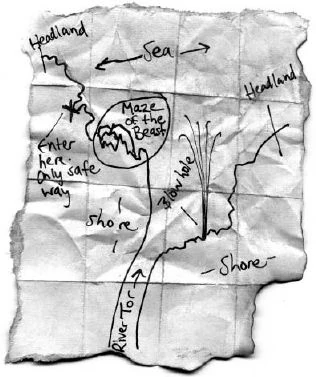 Headland
Sea
Headland
Maze
of the
Beast
Enter
here.
Only safe
way
Shore
Blowhole
- Shore -
River Tor